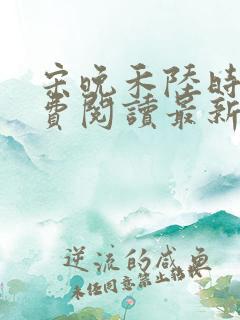 宋晚禾陸時
費閱讀最新
逆流的咸魚
未经同意禁止转载